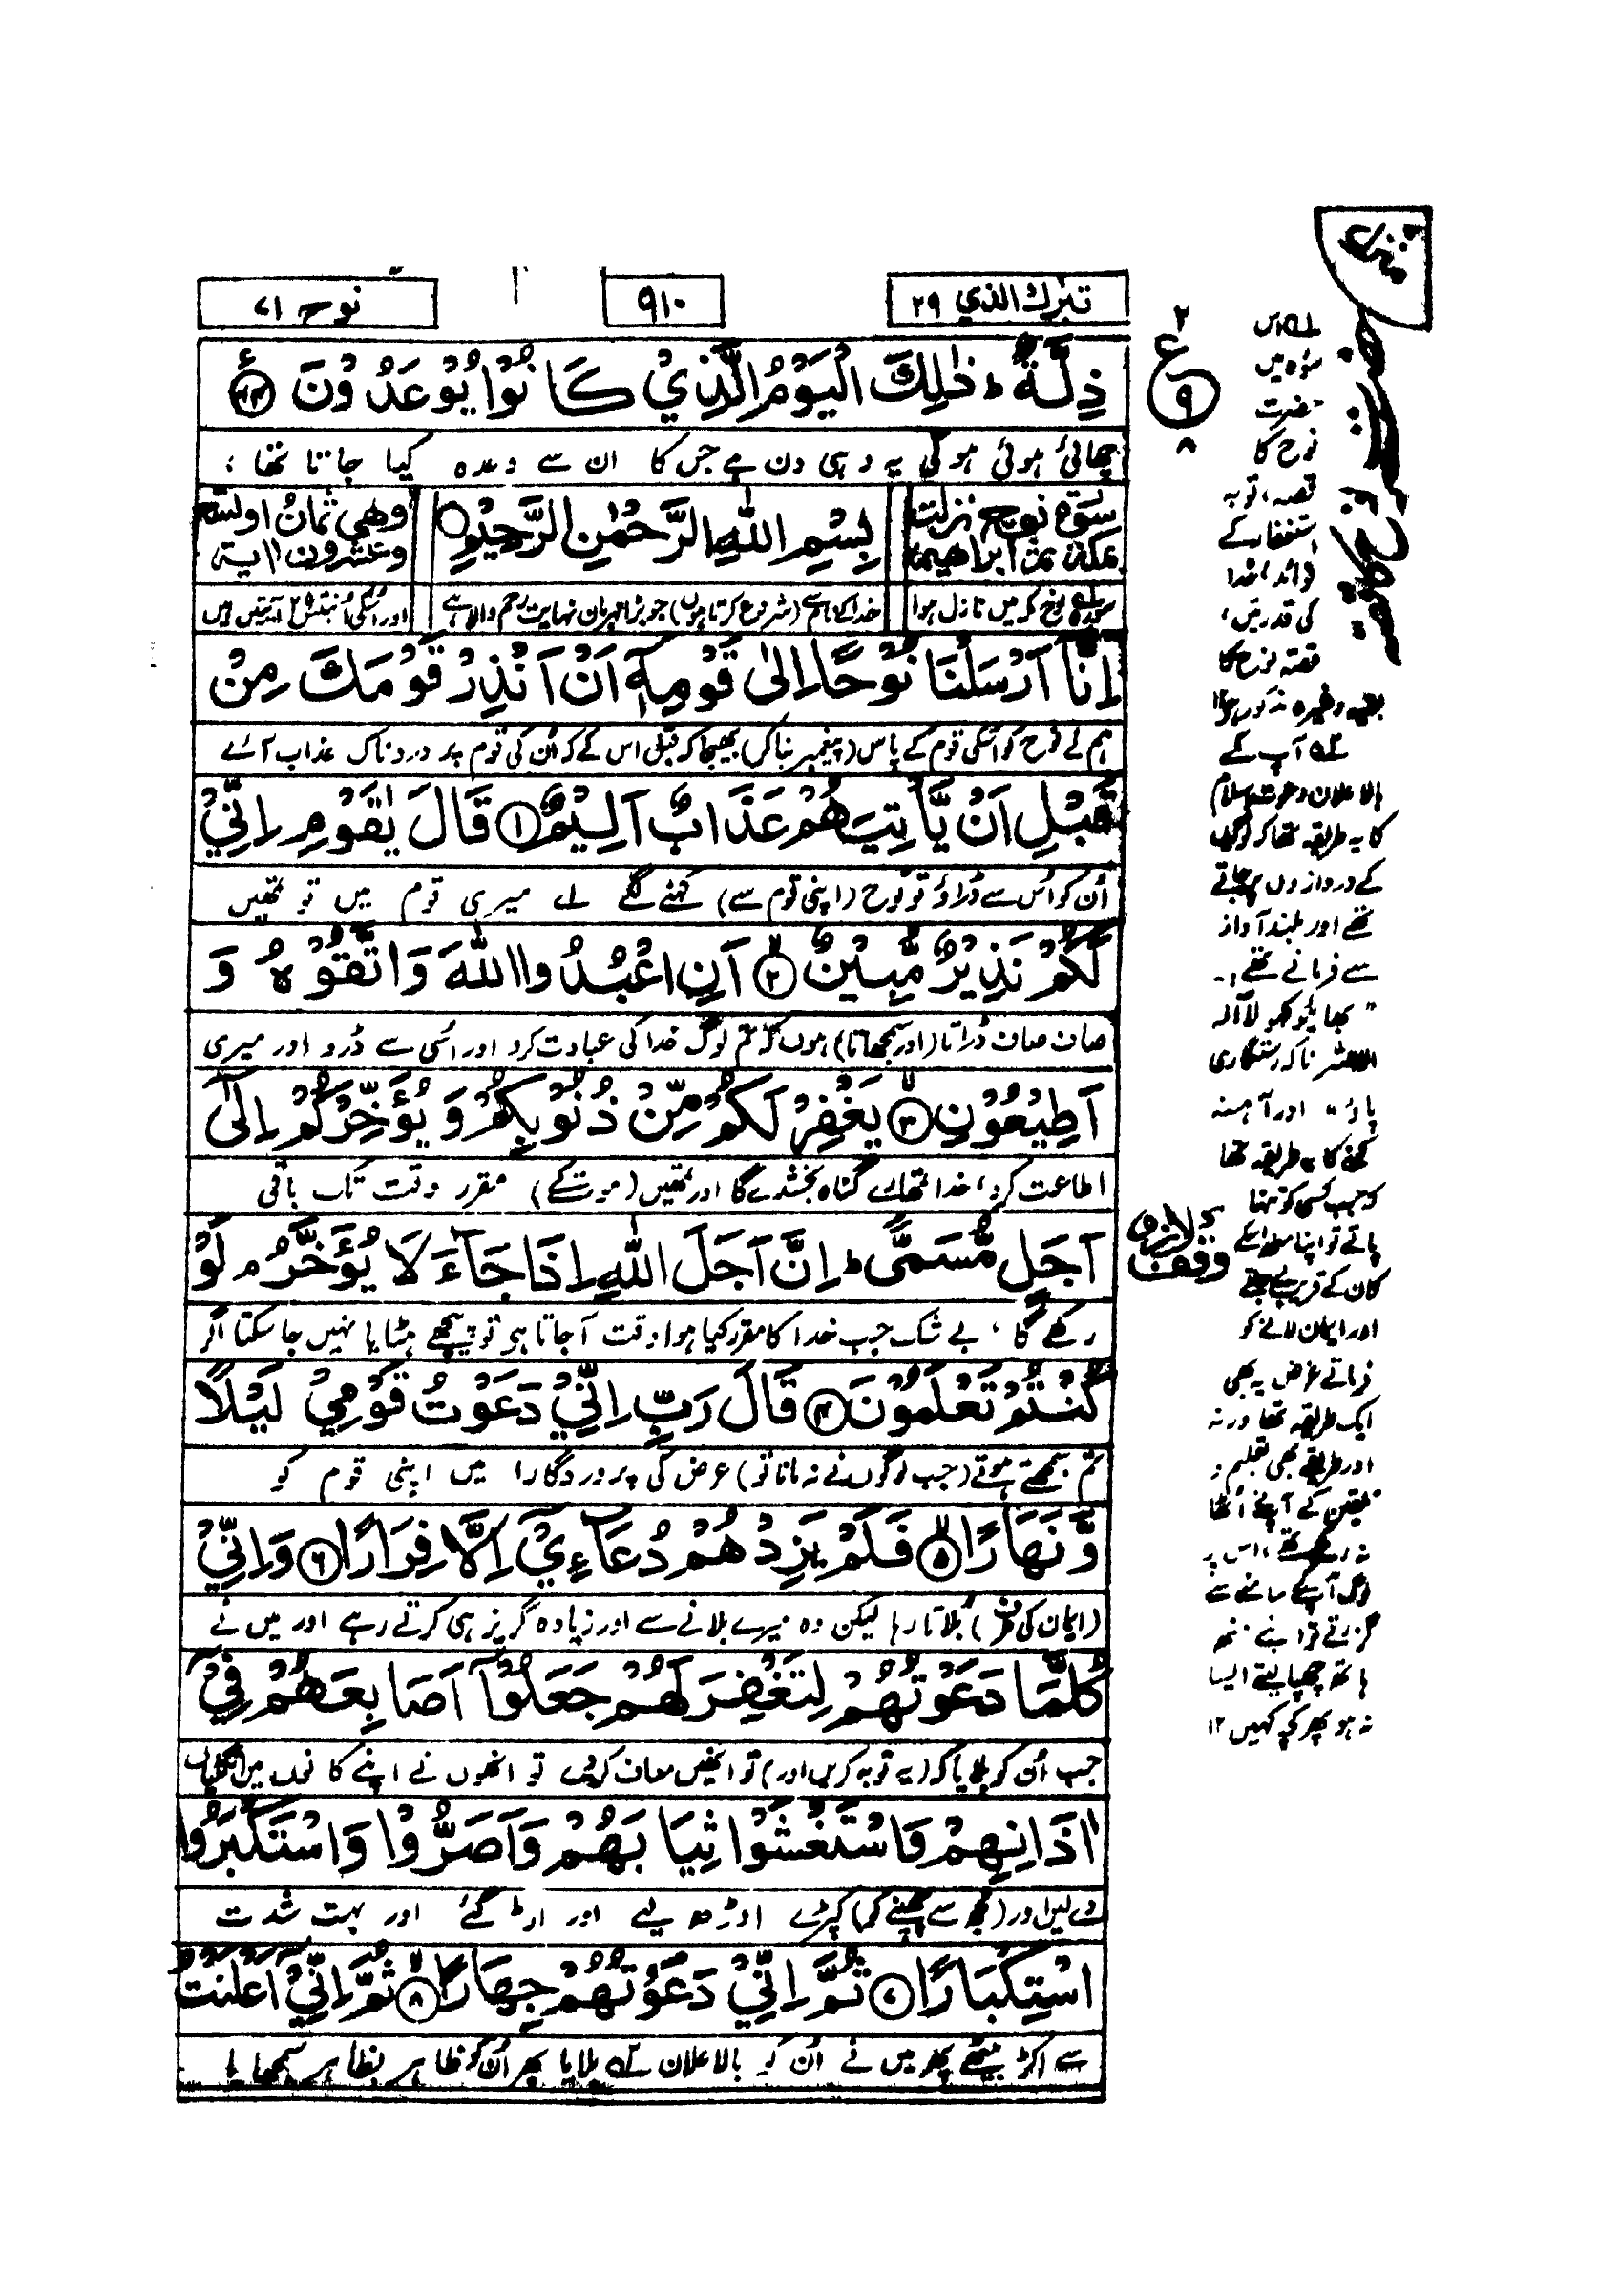 تبٰرك الذي ٢٩
٩١٠
نوح ٧١
ذِلَّةٌ ؕ ذٰلِكَ الْيَوْمُ الَّذِيْ كَانُوْا يُوْعَدُوْنَ ﴿٤٤﴾
چھائی ہوئی ہوگی یہ وہی دن ہے جس کا ان سے وعدہ کیا جاتا تھا ؛
سورة نوح نزلت
بمكة بعد ابراهيم
بِسْمِ اللّٰهِ الرَّحْمٰنِ الرَّحِيْمِ
وهي ثمان او تسع
وعشرون اية
سورہ نوح مکہ میں نازل ہوا
خدا کے نام سے (شروع کرتا ہوں) جو بڑا مہربان نہایت رحم والا ہے
اور اُسکی آیتیں ہیں
اِنَّاۤ اَرْسَلْنَا نُوْحًا اِلٰى قَوْمِهٖۤ اَنْ اَنْذِرْ قَوْمَكَ مِنْ
ہم نے نوح کو اُسکی قوم کے پاس (پیغمبر بنا کر) بھیجا کہ قبل اس کے کہ اُن کی قوم پر دردناک عذاب آئے
قَبْلِ اَنْ يَّاْتِيَهُمْ عَذَابٌ اَلِيْمٌ ﴿١﴾ قَالَ يٰقَوْمِ اِنِّيْ
اُن کو اُس سے ڈراؤ تو نوح (اپنی قوم سے) کہنے لگے اے میری قوم میں تو تمھیں
لَكُمْ نَذِيْرٌ مُّبِيْنٌ ﴿٢﴾ اَنِ اعْبُدُوا اللّٰهَ وَاتَّقُوْهُ وَ
صاف صاف ڈراتا (اور سمجھاتا) ہوں کہ تم لوگ خدا کی عبادت کرو اور اُسی سے ڈرو اور میری
اَطِيْعُوْنِ ﴿٣﴾ يَغْفِرْ لَكُمْ مِّنْ ذُنُوْبِكُمْ وَ يُؤَخِّرْكُمْ اِلٰۤى
اطاعت کرو، خدا تمھارے گناہ بخشدے گا اور تمھیں (موت کے) مقرر وقت تک باقی
اَجَلٍ مُّسَمًّى ؕ اِنَّ اَجَلَ اللّٰهِ اِذَا جَآءَ لَا يُؤَخَّرُ ۘ لَوْ
رکھے گا ، بے شک جب خدا کا مقرر کیا ہوا وقت آجاتا ہی تو پیچھے ہٹایا نہیں جا سکتا اگر
كُنْتُمْ تَعْلَمُوْنَ ﴿٤﴾ قَالَ رَبِّ اِنِّيْ دَعَوْتُ قَوْمِيْ لَيْلًا
تم سمجھتے ہوتے (جب لوگوں نے نہ مانا تو) عرض کی پروردگارا میں اپنی قوم کو
وَّنَهَارًا ﴿٥﴾ فَلَمْ يَزِدْهُمْ دُعَآءِيْۤ اِلَّا فِرَارًا ﴿٦﴾ وَاِنِّيْ
(ایمان کی طرف) بُلاتا رہا لیکن وہ میرے بلانے سے اور زیادہ گریز ہی کرتے رہے اور میں نے
كُلَّمَا دَعَوْتُهُمْ لِتَغْفِرَ لَهُمْ جَعَلُوْۤا اَصَابِعَهُمْ فِيْۤ
جب اُن کو بلایا کہ (یہ توبہ کریں اور) تو انھیں معاف کردے تو انھوں نے اپنے کانوں میں انگلیاں
اٰذَانِهِمْ وَاسْتَغْشَوْا ثِيَابَهُمْ وَاَصَرُّوْا وَاسْتَكْبَرُوا
دے لیں اور (مجھ سے چھپنے کو) کپڑے اوڑھ لیے اور اڑ گئے اور بہت شدت
اسْتِكْبَارًا ﴿٧﴾ ثُمَّ اِنِّيْ دَعَوْتُهُمْ جِهَارًا ﴿٨﴾ ثُمَّ اِنِّيْۤ اَعْلَنْتُ
سے اکڑ بیٹھے پھر میں نے اُن کو بالاعلان بلایا پھر اُن کو ظاہر بظاہر سمجھایا
٢
ع
٩
٨
وقف لازم
اس
سورہ میں
حضرت
نوح کا
قصہ، توبہ
استغفار کے
فوائد، خدا
کی قدرتیں،
قصہ نوح کا
بقیہ وغیرہ مذکور ہوا
آپ کے
بالاعلان دعوت اسلام
کا یہ طریقہ تھا کہ لوگوں
کے دروازوں پر جاتے
تھے اور بلند آواز
سے فرماتے تھے :-
" بھائیو کہو لا الہ
الا اللہ تاکہ رستگاری
پاؤ " اور آہستہ
کہنے کا یہ طریقہ تھا
کہ جب کسی کو تنہا
پاتے تو اپنا منھ اسکے
کان کے قریب لے جاتے
اور ایمان لانے کو
فرماتے غرض یہ بھی
ایک طریقہ تھا ورنہ
اور طریقے بھی تعلیم و
تلقین کے آپ نے اُٹھا
نہ رکھے تھے ، اس پر
لوگ آپ کے سامنے سے
گزرتے تو اپنے منھ
ہاتھ چھپا لیتے ایسا
نہ ہو پھر کچھ کہیں ١٢